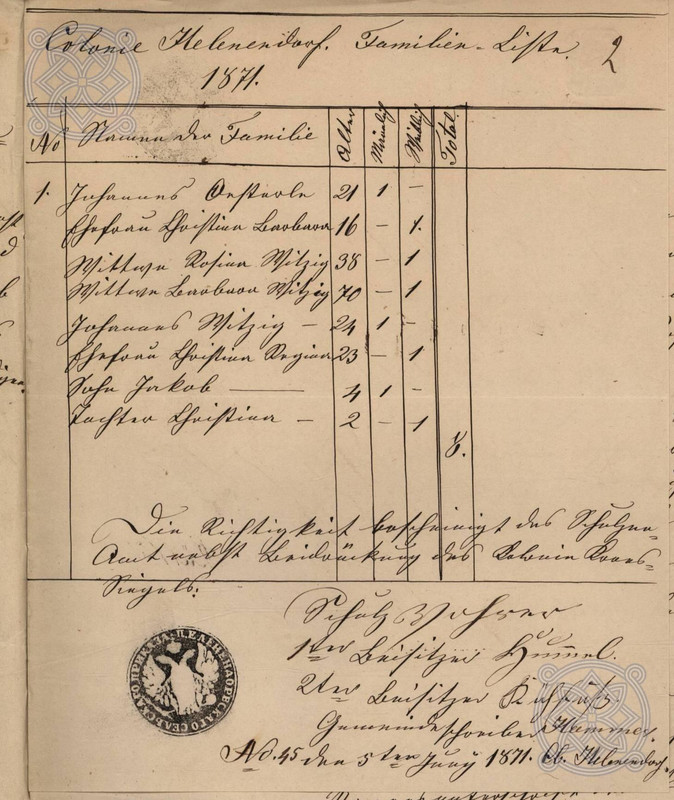 Colonie Helenendorf. Familien-Liste.
2
1871.
No Namen der Familie Alter Männlich Weiblich Total
1. Johannes Oesterle 21 1 –
Ehefrau Christina Barbara 16 – 1.
Wittwe Rosina Witzig 38 – 1
Wittwe Barbara Witzig 70 – 1
Johannes Witzig – 24 1 –
Ehefrau Christina Regina 23 – 1
Sohn Jakob — 4 1 –
Tochter Christina – 2 – 1
8.
Die Richtigkeit bescheinigt das Schulzen-
Amt nebst Beidrückung des Kolonie
Siegels:
Schulz Vohrer
1ter Beisitzer Hummel.
2ter Beisitzer
Gemeindeschreiber Hammer.
No. 45 den 5ten Juny 1871. Helenendorf
ЕЛЕНЕНДОРСКАГО СЕЛЬСКАГО ПРИКАЗА